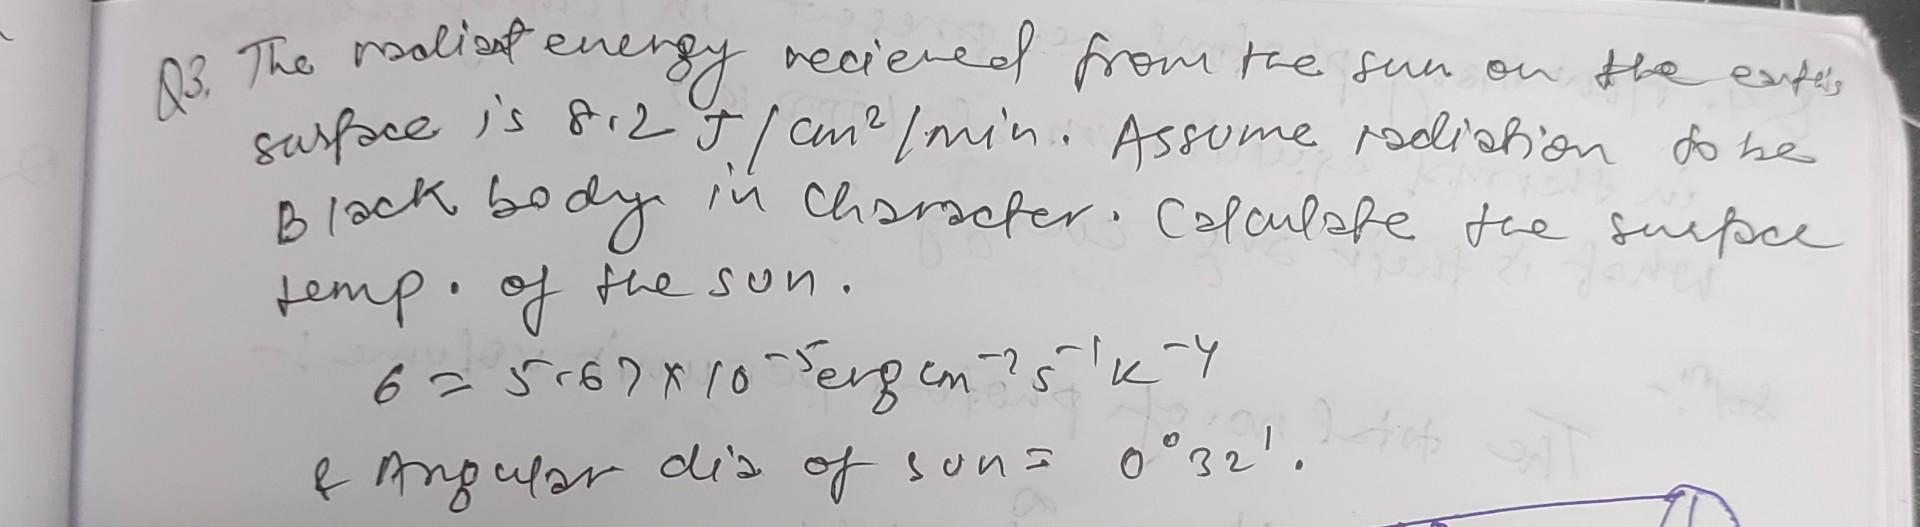 Q3. The radiant energy recieved from the sun on the earth's
surface is 8.2 J/cm²/min. Assume radiation to be
Black body in Character. Calculate the surface
temp. of the sun.
6 = 5.67 x 10⁻⁵ erg cm⁻² s⁻¹ K⁻⁴
& Angular dia of sun = 0°32'.